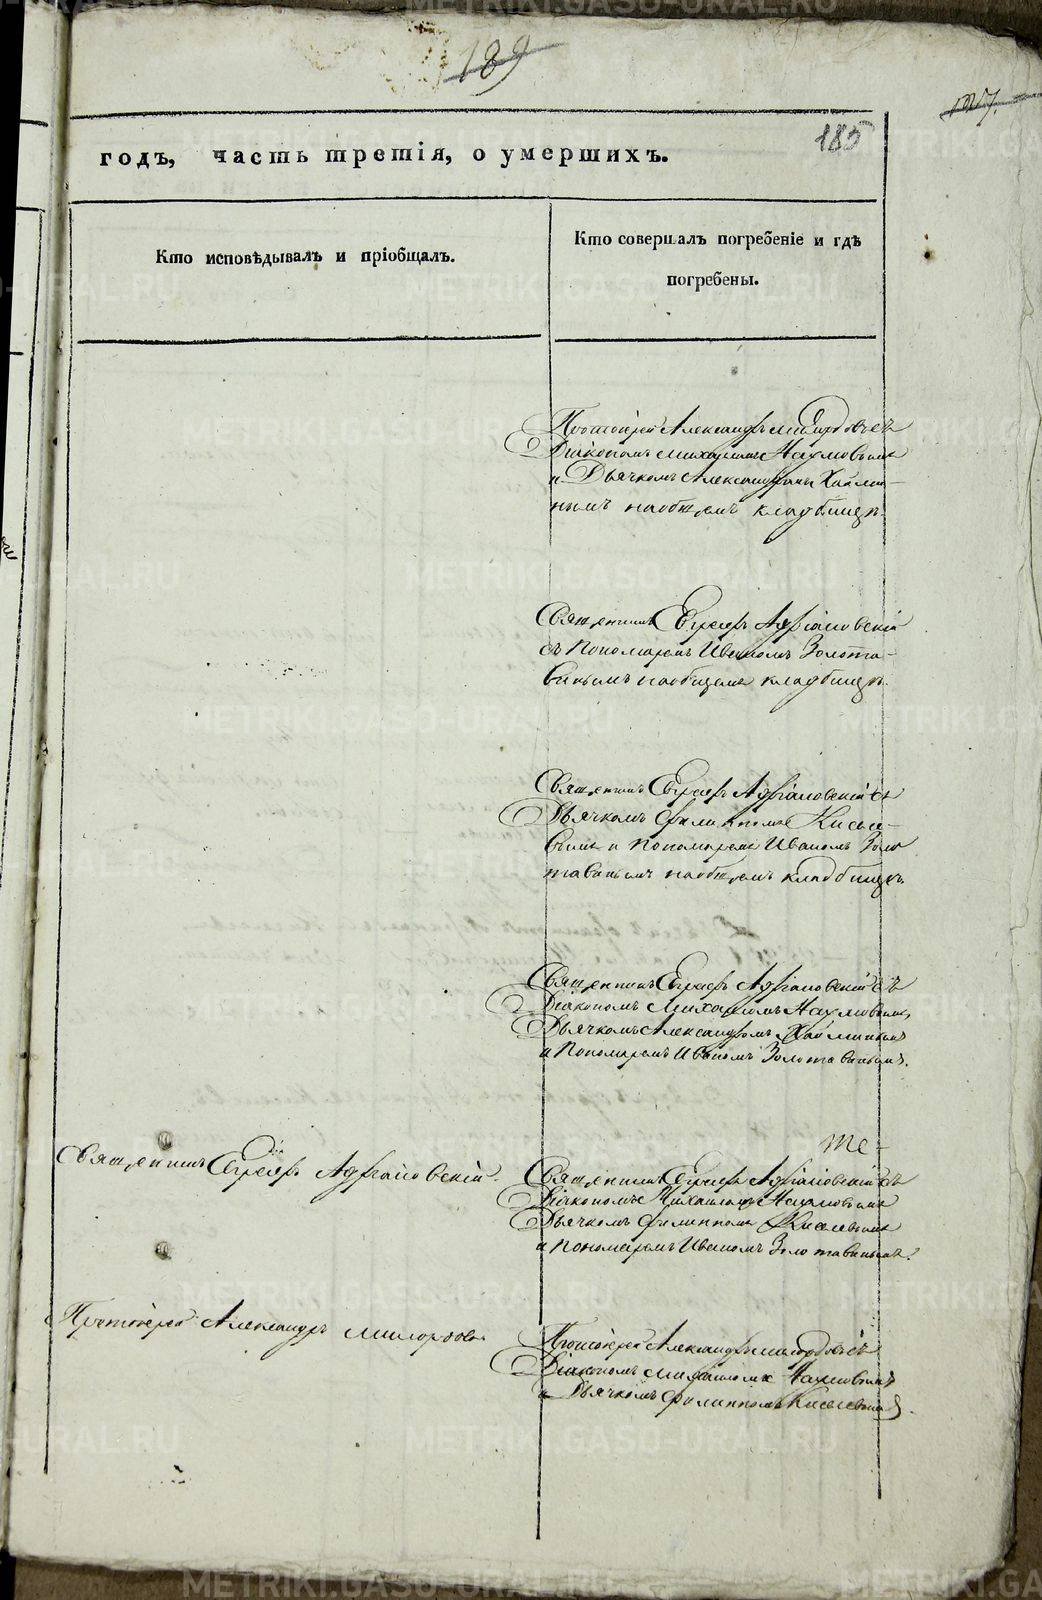 189
185
годъ, часть третія, о умершихъ.
Кто исповѣдывалъ и пріобщалъ.
Кто совершалъ погребеніе и гдѣ
погребены.
Протоіерей Александръ Милордовъ съ
Діакономъ Михаиломъ Наумовымъ
и Дьячкомъ Александромъ Хаймин-
нымъ на общемъ кладбищѣ.
Священникъ Евграфъ Адріановскій
съ Пономаремъ Иваномъ Золота-
винымъ на общемъ кладбищѣ.
Священникъ Евграфъ Адріановскій съ
Дьячкомъ Филиппомъ Киселе-
вымъ и Пономаремъ Иваномъ Золо
тавинымъ на общемъ кладбищѣ.
Священникъ Евграфъ Адріановскій съ
Діакономъ Михаиломъ Наумовымъ,
Дьячкомъ Александромъ Хайминымъ
и Пономаремъ Иваномъ Золотавинымъ.
Священникъ Евграфъ Адріановскій.
Те-
Священникъ Евграфъ Адріановскій съ
Діакономъ Михаиломъ Наумовымъ
Дьячкомъ Филиппомъ Киселевымъ
и Пономаремъ Иваномъ Золотавинымъ.
Протоіерей Александръ Милордовъ
Протоіерей Александръ Милордовъ съ
Діакономъ Михаиломъ Наумовымъ
и Дьячкомъ Филиппомъ Киселевымъ.
METRIKI.GASO-URAL.RU